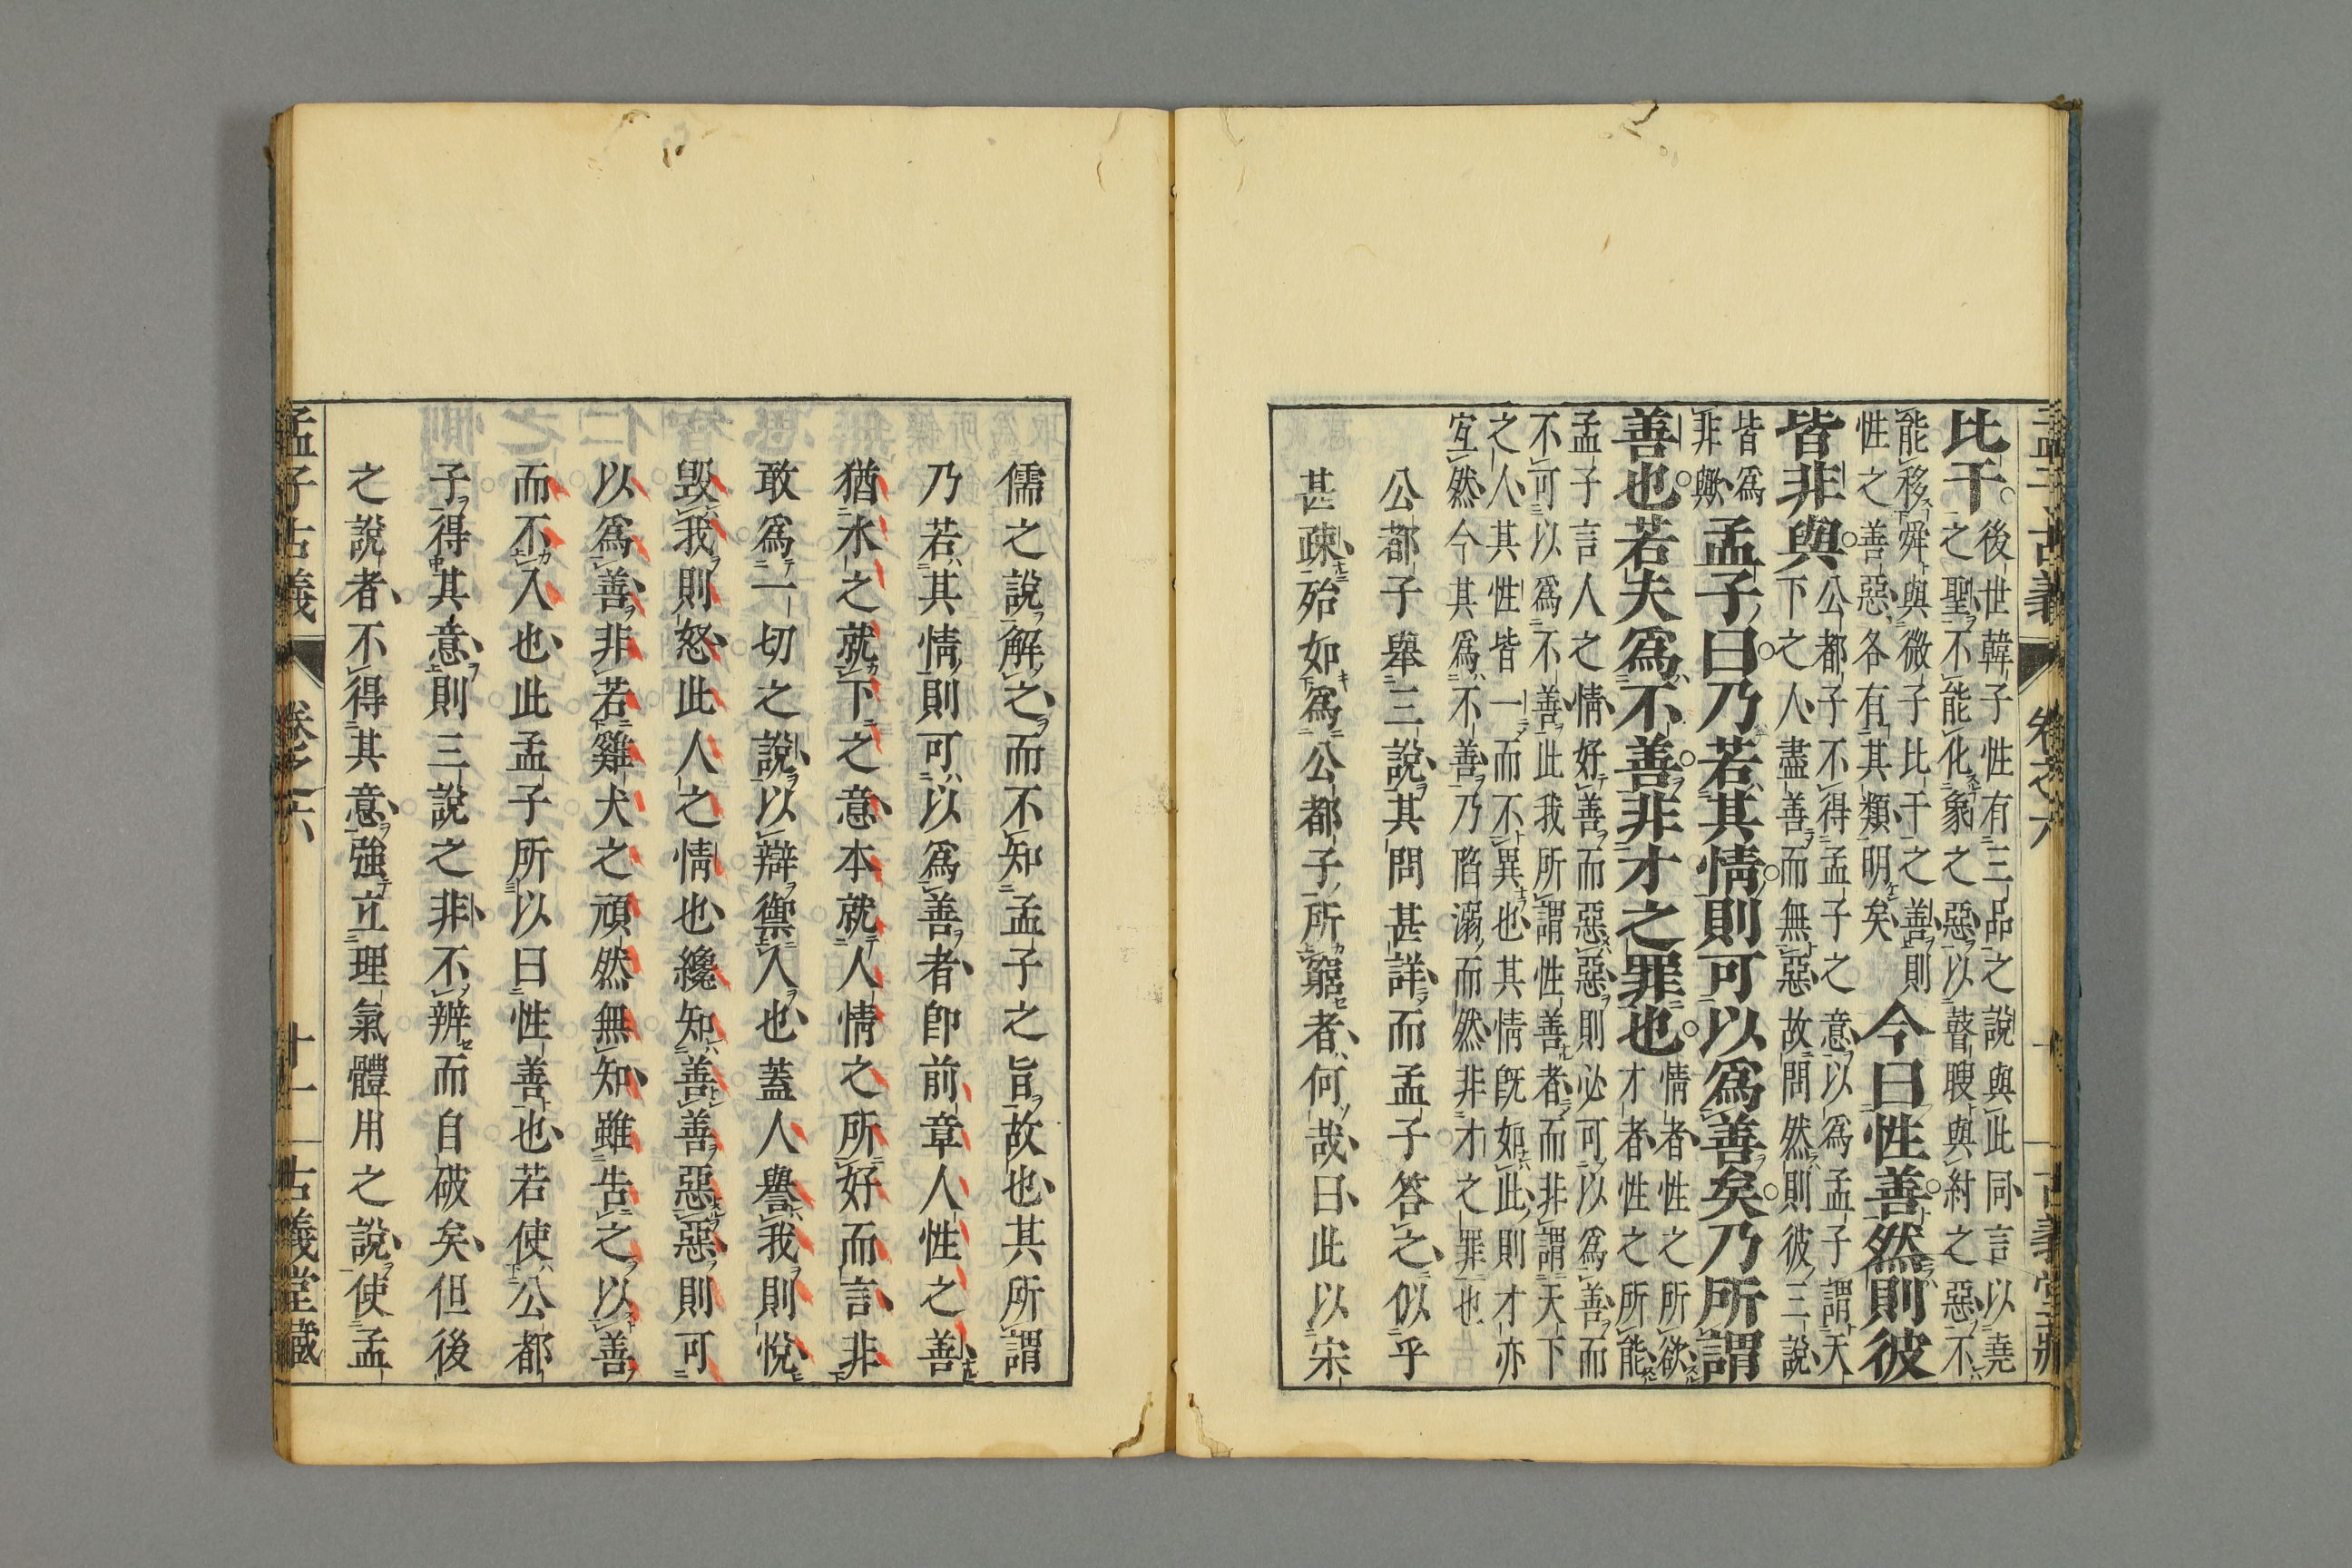 孟子古義 卷之六 十一 古義堂藏
比干
後世韓子性有三品之說與此同言以堯
之聖不能化象之惡以瞽瞍與紂之惡不
能移舜與微子比干之善則
性之善惡各有其類明矣
今曰性善然則彼
皆非與
公都子不得孟子之意以爲孟子謂天
下之人盡善而無惡故問然則彼三說
皆爲
非歟
孟子曰乃若其情則可以爲善矣乃所謂
善也若夫爲不善非才之罪也
情者性之所欲
才者性之所能
孟子言人之情好善而惡惡則必可以爲善而
不可以爲不善此我所謂性善者而非謂天下
之人其性皆一而不異也其情旣如此則才亦
宜然今其爲不善乃陷溺而然非才之罪也
公都子舉三說其問甚詳而孟子答之似乎
甚疎殆如爲公都子所窮者何哉曰此以宋
儒之說解之而不知孟子之旨故也其所謂
乃若其情則可以爲善者卽前章人性之善
猶水之就下之意本就人情之所好而言非
敢爲一切之說以辯禦人也蓋人譽我則悅
毀我則怒此人之情也纔知善善惡惡則可
以爲善非若雞犬之頑然無知雖告之以善
而不入也此孟子所以曰性善也若使公都
子得其意則三說之非不辨而自破矣但後
之說者不得其意強立理氣體用之說使孟
孟子古義 卷之六 十一 古義堂藏